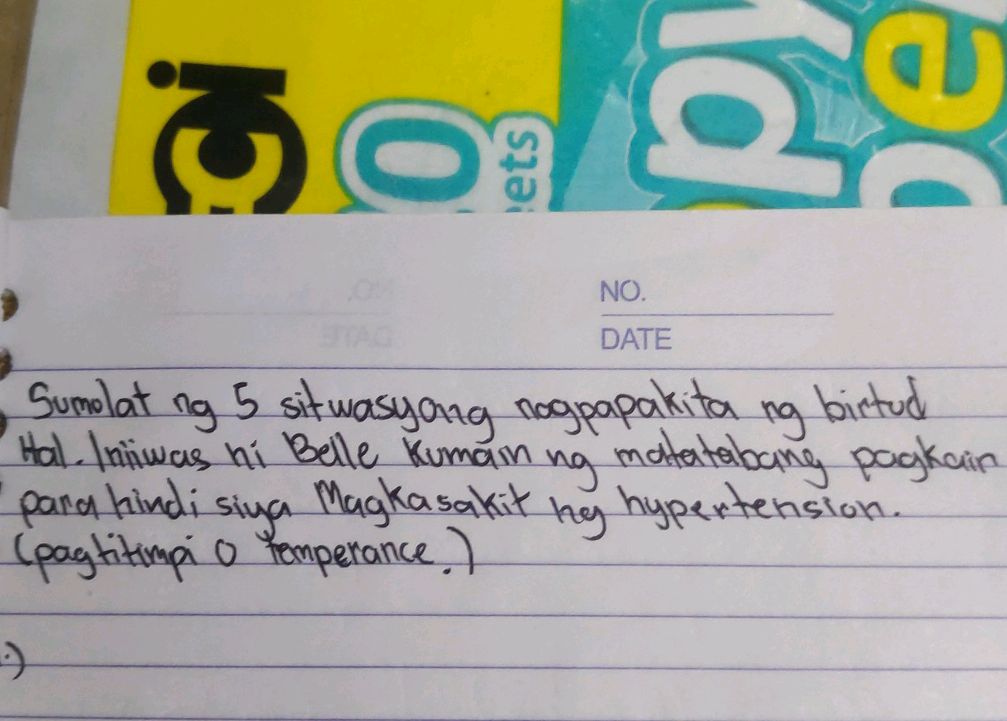 ets
NO.
DATE
Sumolat ng 5 sitwasyong nagpapakita ng birtud
Hal. Iniiwas ni Belle Kumain ng matatabang pagkain
para hindi siya Magkasakit ng hypertension.
(pagtitimpi o temperance.)